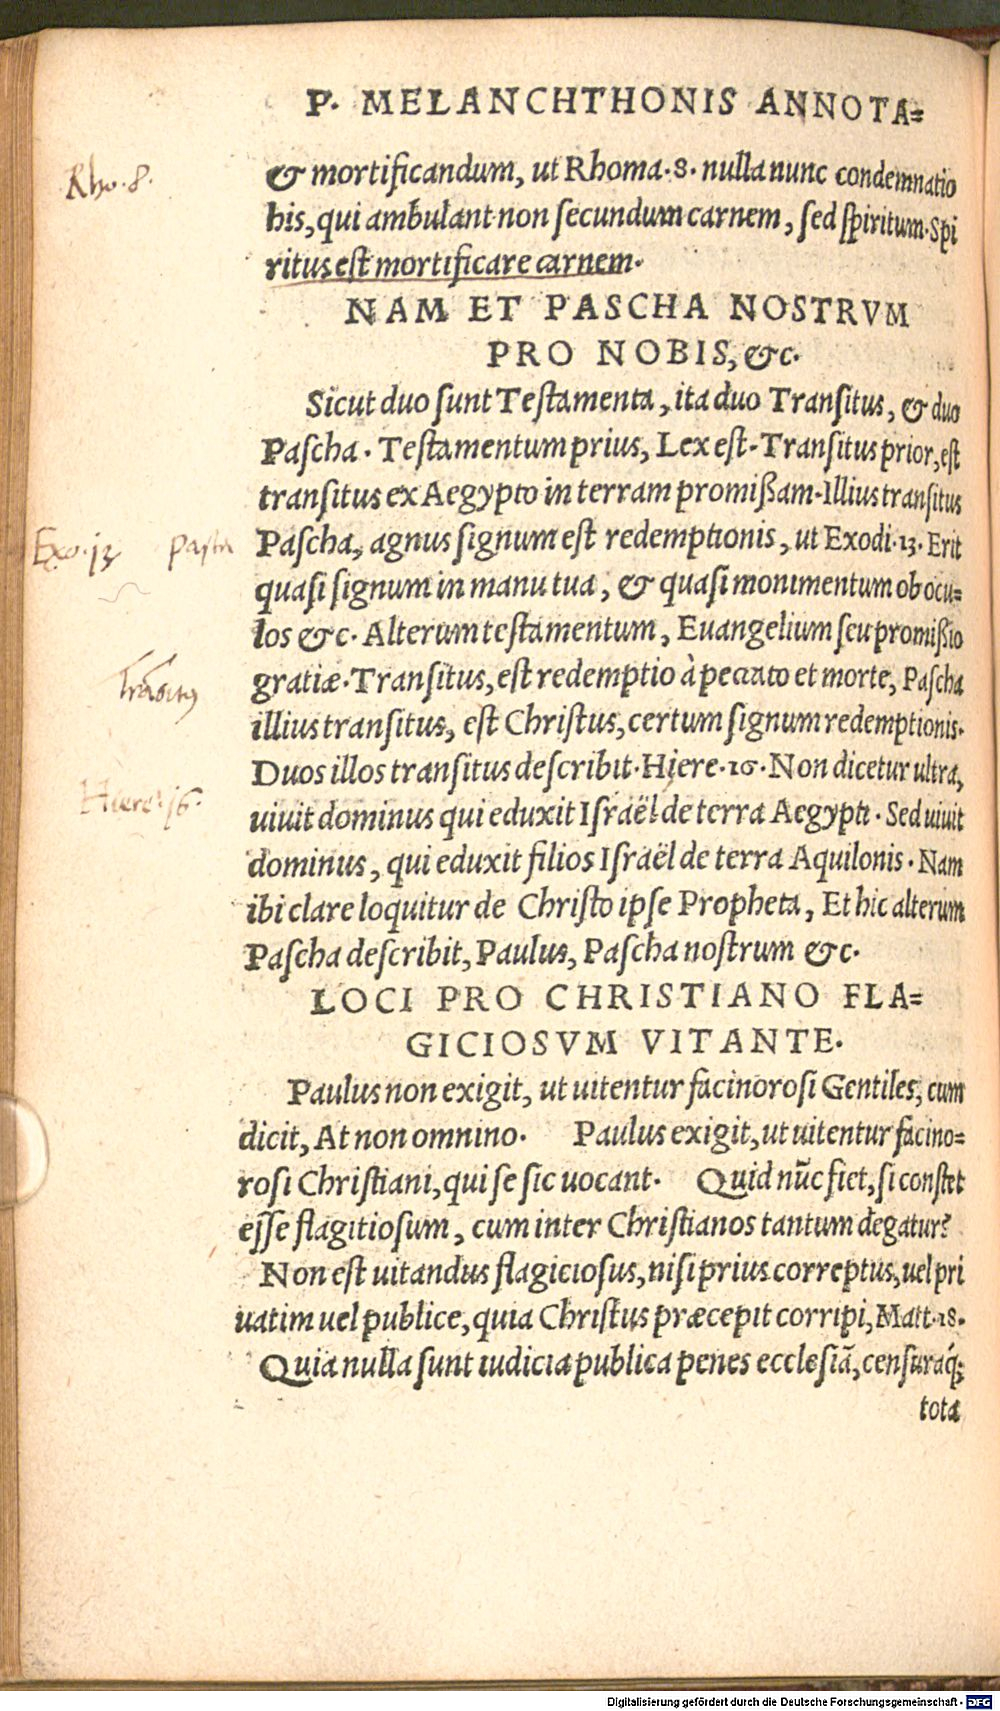 P. MELANCHTHONIS ANNOTA=
& mortificandum, ut Rhoma.8. nulla nunc condemnatio
his, qui ambulant non secundum carnem, sed spiritum. Spi
ritus est mortificare carnem.
NAM ET PASCHA NOSTRVM
PRO NOBIS, &c.
Sicut duo sunt Testamenta, ita duo Transitus, & duo
Pascha. Testamentum prius, Lex est. Transitus prior, est
transitus ex Aegypto in terram promißam. Illius transitus
Pascha, agnus signum est redemptionis, ut Exodi.13. Erit
quasi signum in manu tua, & quasi monimentum ob ocu=
los &c. Alterum testamentum, Euangelium seu promißio
gratiæ. Transitus, est redemptio à peccato et morte, Pascha
illius transitus, est Christus, certum signum redemptionis.
Duos illos transitus describit. Hiere.16. Non dicetur ultra,
uiuit dominus qui eduxit Israël de terra Aegypti. Sed uiuit
dominus, qui eduxit filios Israël de terra Aquilonis. Nam
ibi clare loquitur de Christo ipse Propheta, Et hic alterum
Pascha describit, Paulus, Pascha nostrum &c.
LOCI PRO CHRISTIANO FLA=
GICIOSVM VITANTE.
Paulus non exigit, ut uitentur facinorosi Gentiles, cum
dicit, At non omnino. Paulus exigit, ut uitentur facino=
rosi Christiani, qui se sic uocant. Quid nūc fiet, si constet
esse flagitiosum, cum inter Christianos tantum degatur?
Non est uitandus flagiciosus, nisi prius correptus, uel pri
uatim uel publice, quia Christus præcepit corripi, Matt.18.
Quia nulla sunt iudicia publica penes ecclesiā, censuraq́;
tota
Rho. 8.
Exo. 13
pascha
Transitus
Hiere. 16.
Digitalisierung gefördert durch die Deutsche Forschungsgemeinschaft - DFG